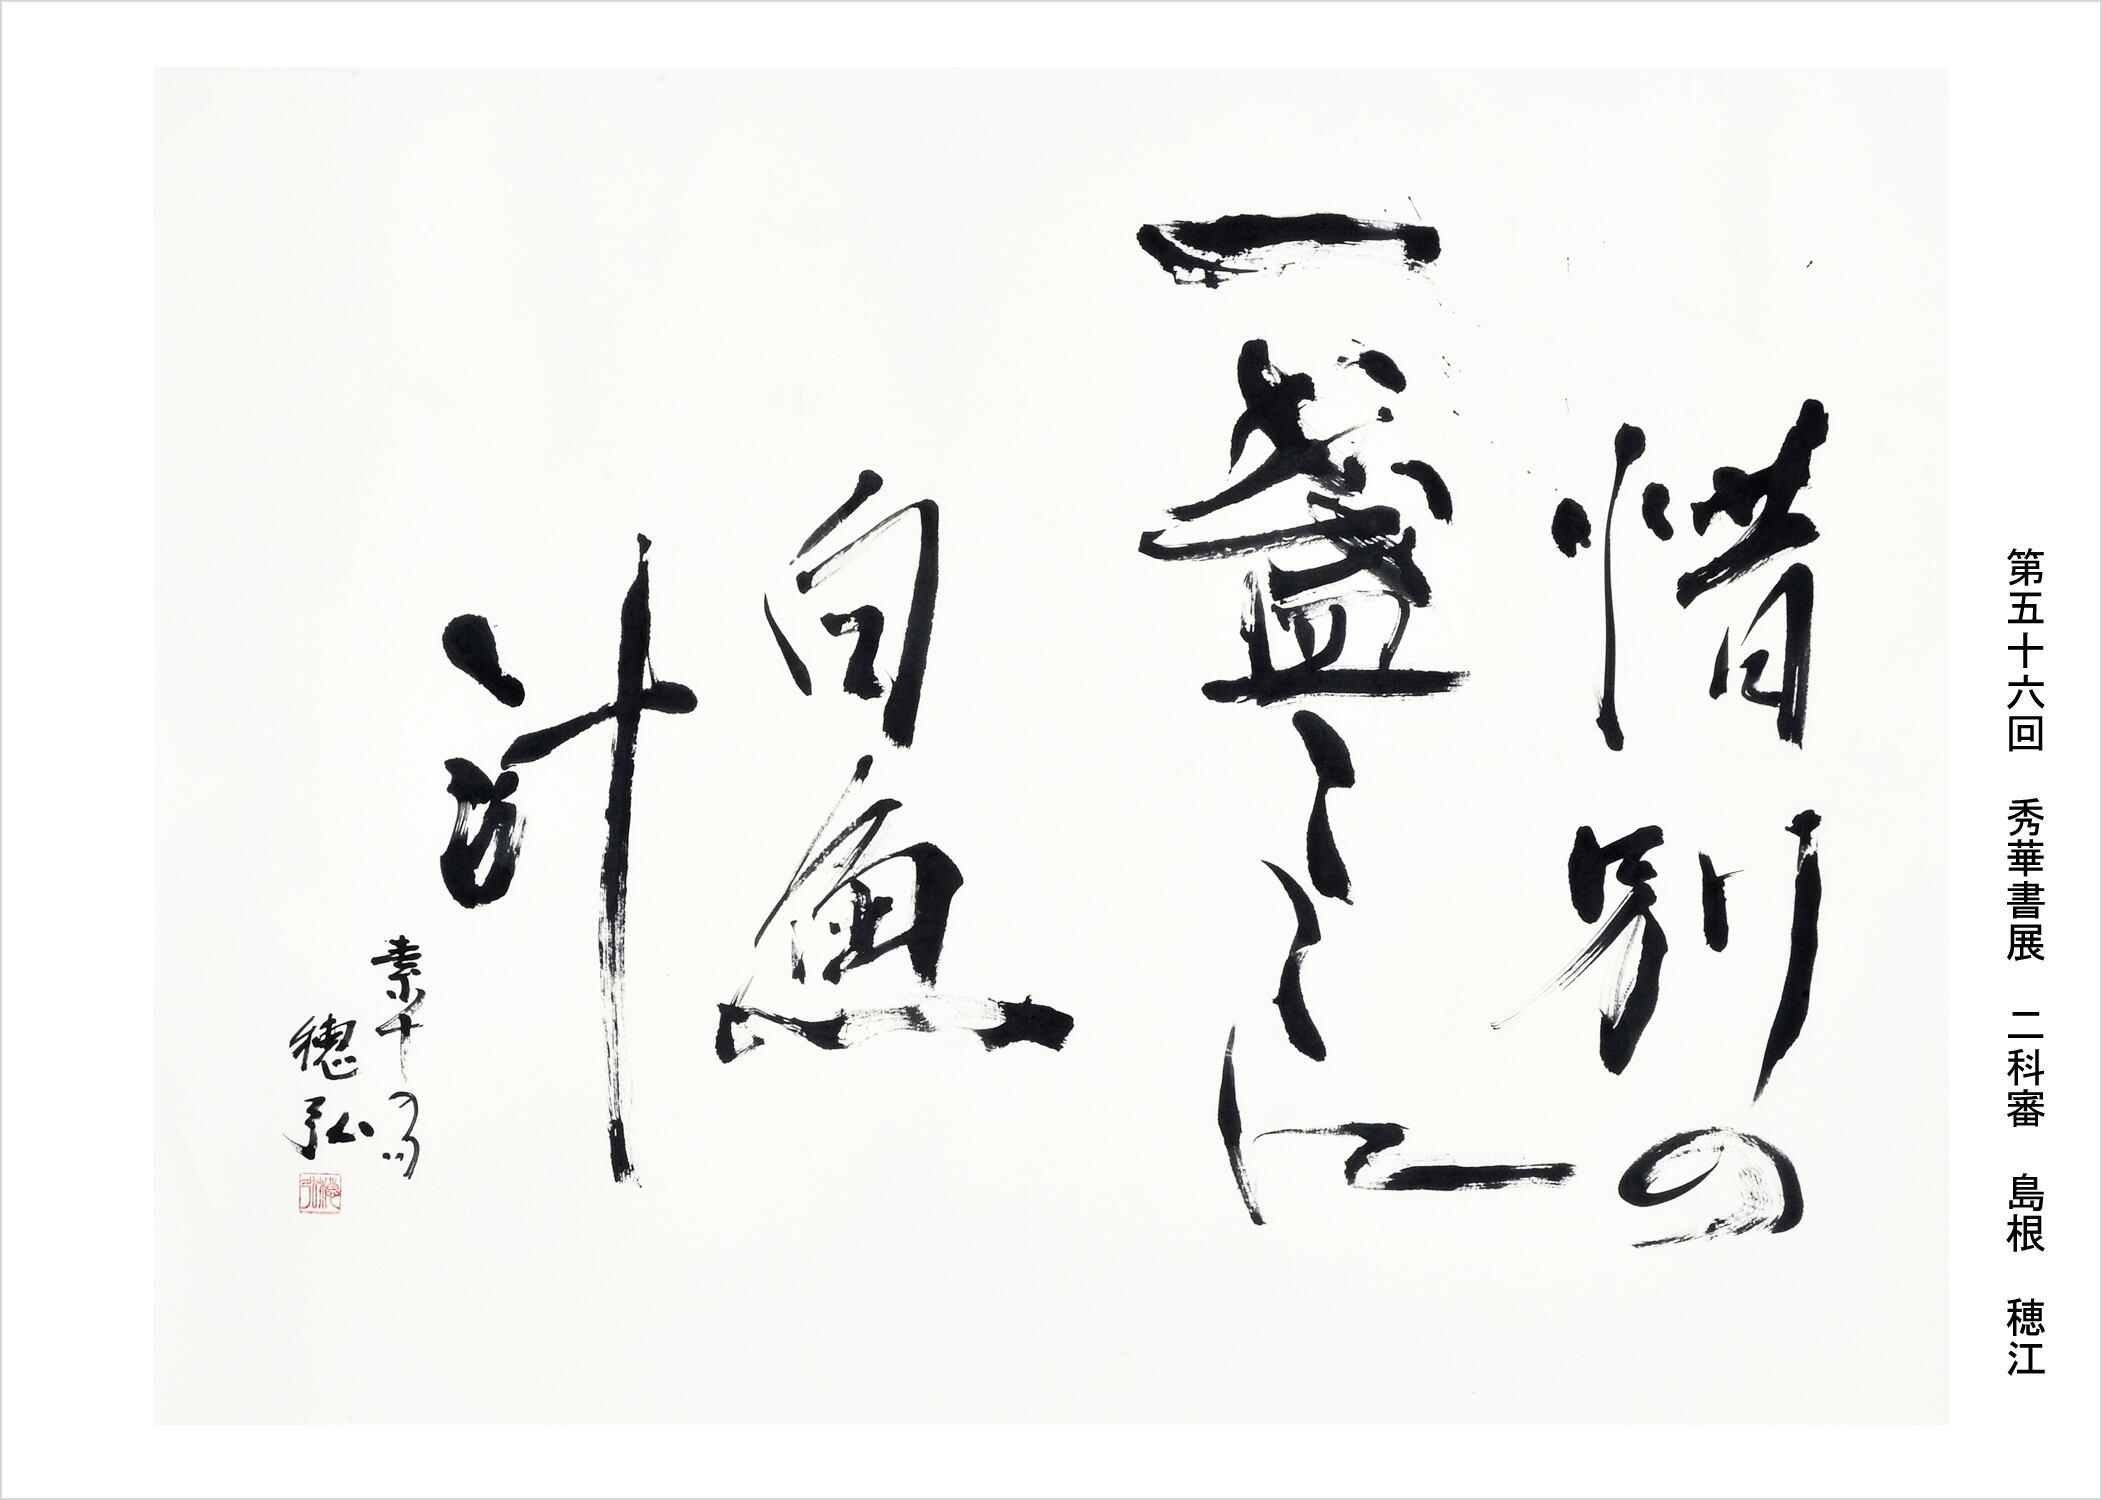 第五十六回　秀華書展　二科審　島根　穂江
惜別の
一盞ここに
白魚
汁
素十句
穂弘